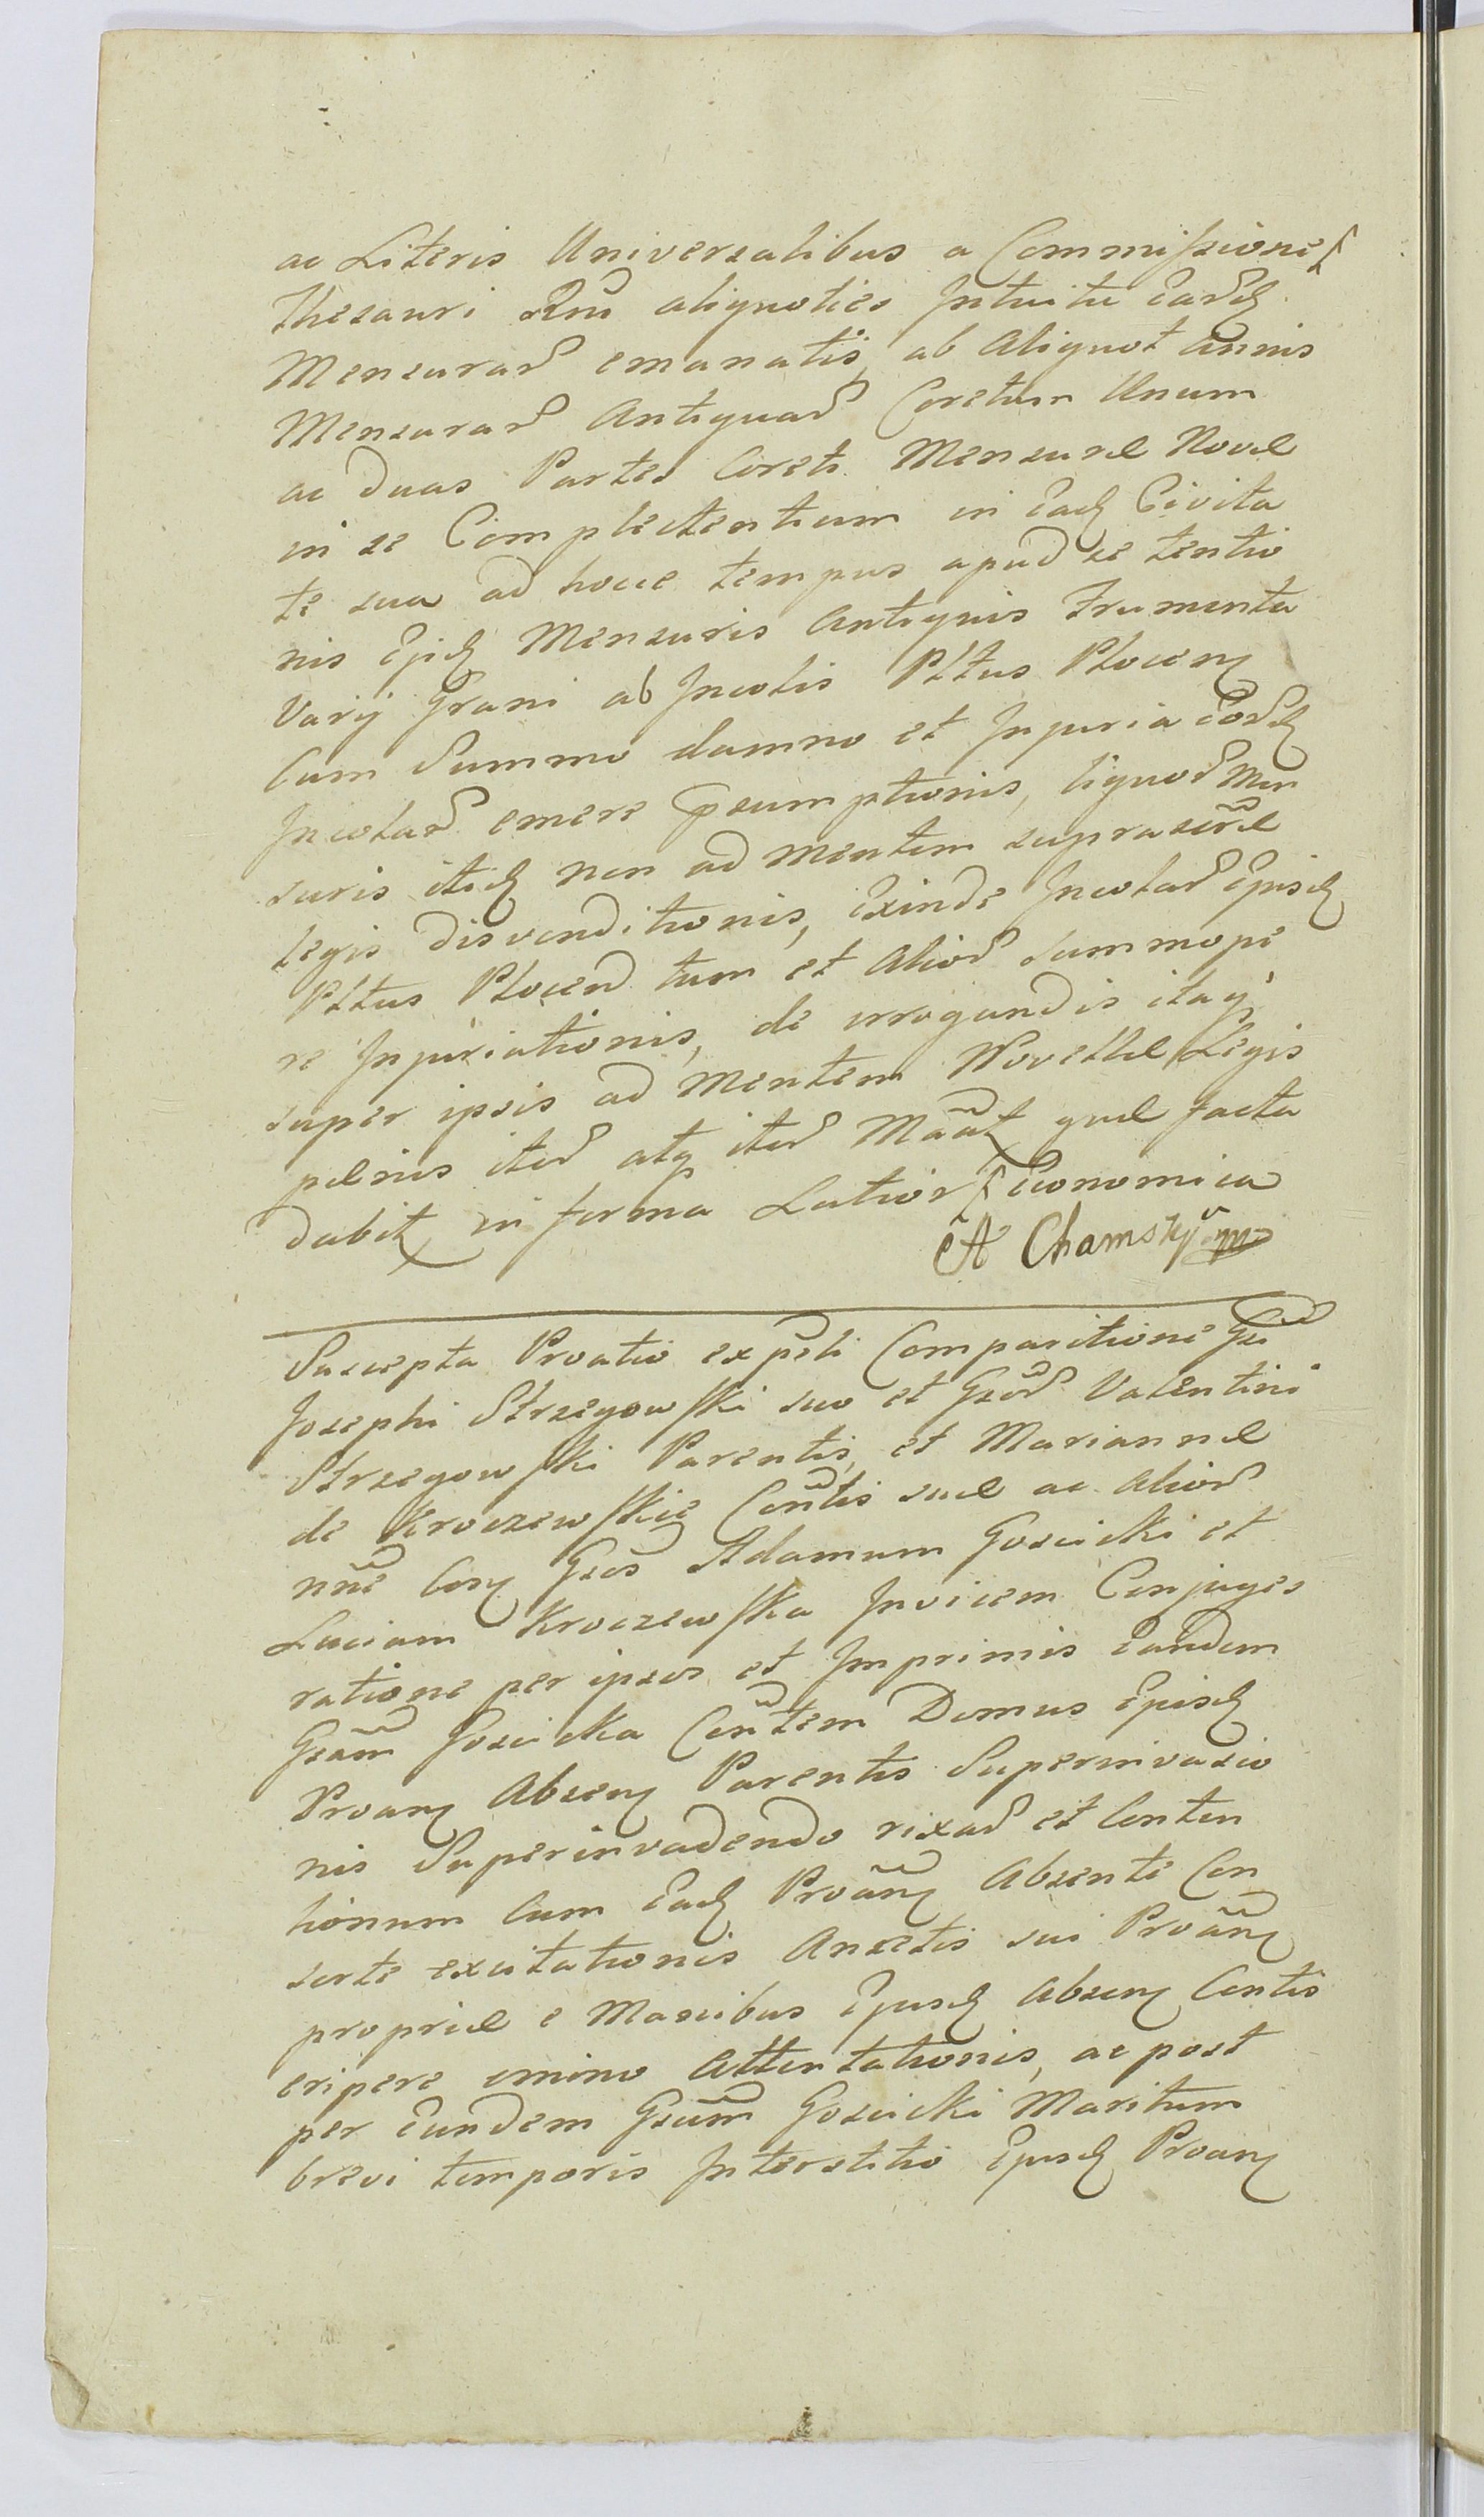 ac Literis Universalibus a Commissione
Thesauri Rni aliquoties Intuitu Eard
Mensurar emanatis, ab Aliquot Annis
Mensurar Antiquar Coretum Unum
ac duas Partes Coreti Mensuræ Novæ
in se Complectentium in Ead Civita
te sua ad hocce tempus apud se tentio
nis Ejsd Mensuris Antiquis Frumenta
Varij Grani ab Incolis Pltus Plocen
Cum Summo damno et Injuria Eord
Incolar emere Psumptionis, liquor Men
suris itid non ad mentem suprascræ
Legis disvenditionis, Exinde Incolar Ejusd
Pltus Plocen tum et Alior summope
re Injuriationis, de irrogandis itaq
super ipsis ad Mentem Novellæ Legis
pænis iter atq iter Mãat quæ facta
dabit in forma Latiori Economica
A Chamsky mp
Suscepta Proatio expsti Comparitione Gsi
Josephi Strzegowski suo et Gsor Valentini
Strzegowski Parentis, et Mariannæ
de Kroczewskie Contis suæ ac Alior
nne Con Gsos Adamum Goscicki et
Luciam Kroczewska Invicem Conjuges
ratione per ipsos et Imprimis Eandem
Gsam Goscicka Contem Domus Ejusd
Proan Absen Parentis Superinvasio
nis Superinvadendo rixar et Conten
tionum Cum Ead Proan Absente Con
sorte excitationis Ansetis sui Proan
propriæ e Manibus Ejusd Absen Contis
eripere omino Attentationis, ac post
per Eundem Gsum Goscicki Maritum
brevi temporis Interstitio Ejusd Proan